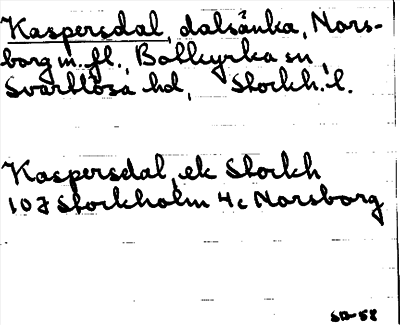 Kaspersdal, dalsänka, Nors-
borg m. fl., Botkyrka sn,
Svartlösa hd, Stockh. l.
Kaspersdal, ek Stockh
10J Stockholm 4c Norsborg
SD-58